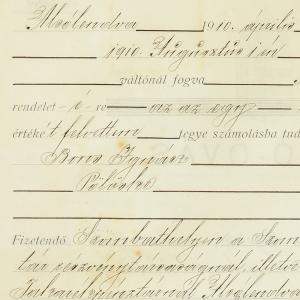 Alsólendva 1910. április
1910. Augusztus 1 én
váltónál fogva
rendelet -é- re az az egy
értékét felvettem tegye számolásba tud
Ignácz
Fizetendő Szombathelyen a Szom
tár részvénytársaságnál, illetve
Takarékpénztárnál Alsólendva